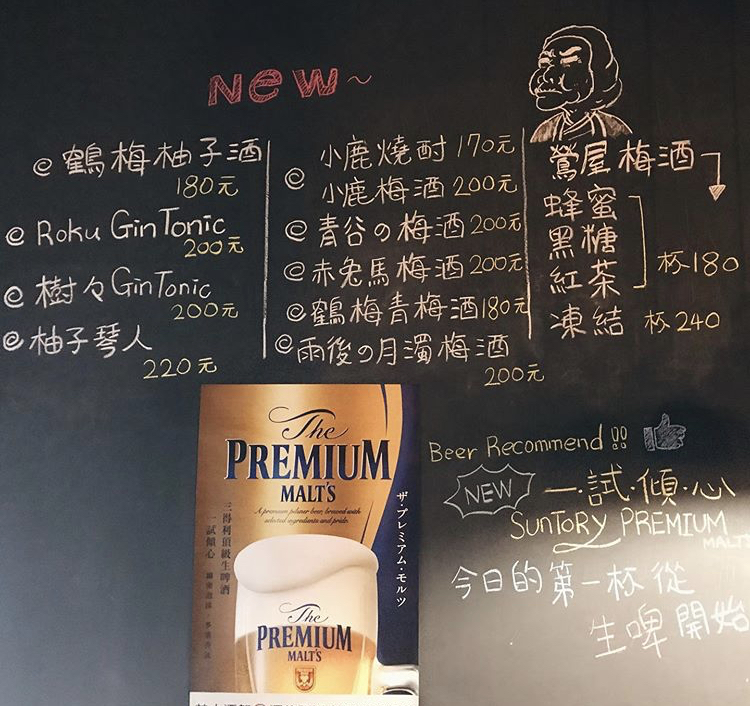 New~
@ 鶴梅柚子酒
180元
@ Roku GinTonic
200元
@ 樹々GinTonic
200元
@ 柚子琴人
220元
@ 小鹿燒酎 170元
小鹿梅酒 200元
@ 青谷の梅酒 200元
@ 赤兔馬梅酒 200元
@ 鶴梅青梅酒 180元
@ 雨後の月濁梅酒
200元
鶯屋梅酒
蜂蜜
黑糖
紅茶
杯180
凍結 杯240
Beer Recommend!!
NEW 一·試·傾·心
SUNTORY PREMIUM
MALT'S
今日的第一杯從
生啤開始
The
PREMIUM
MALT'S
A premium pilsner beer, brewed with
selected ingredients and pride.
ザ・プレミアム・モルツ
三得利頂級生啤酒
一試傾心
The
PREMIUM
MALT'S